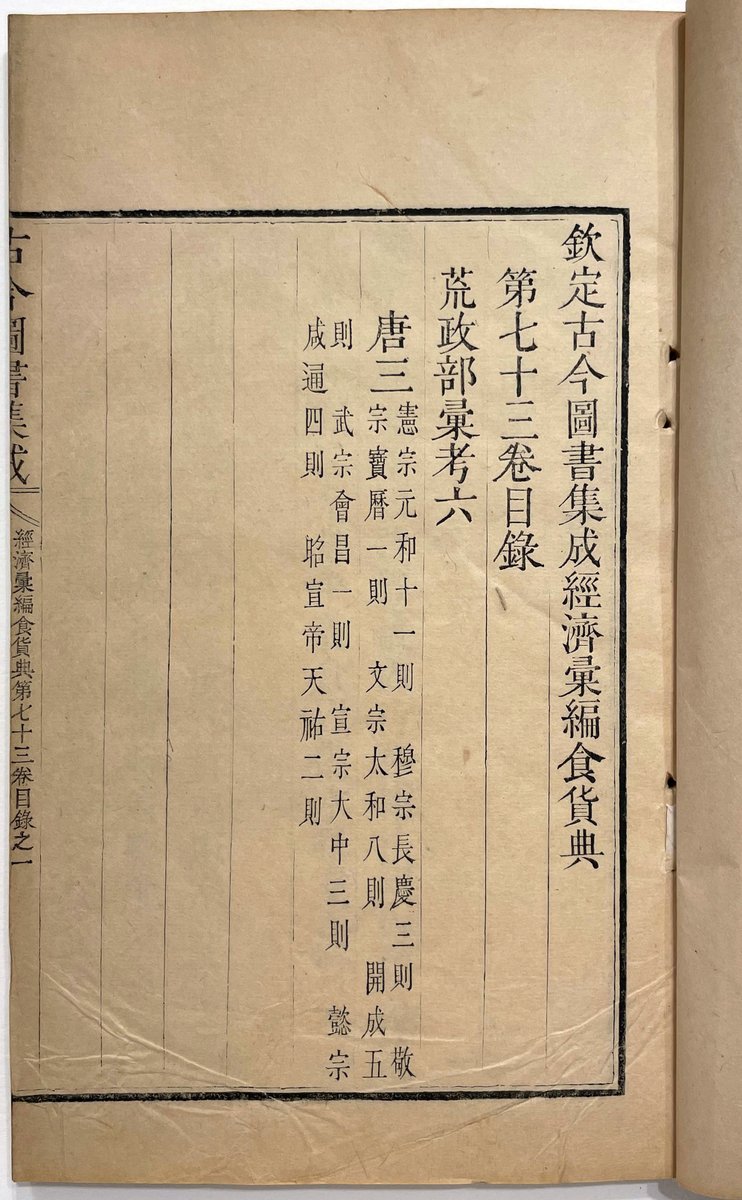 欽定古今圖書集成經濟彙編食貨典
第七十三卷目錄
荒政部彙考六
唐三
憲宗元和十一則 穆宗長慶三則 敬
宗寶曆一則 文宗太和八則 開成五
則 武宗會昌一則 宣宗大中三則 懿宗
咸通四則 昭宣帝天祐二則
古今圖書集成
經濟彙編食貨典第七十三卷目錄之一